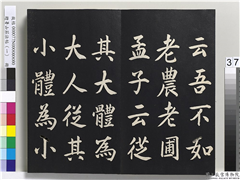 云吾不如
老農老圃
孟子云從
其大體為
大人從其
小體為小
37